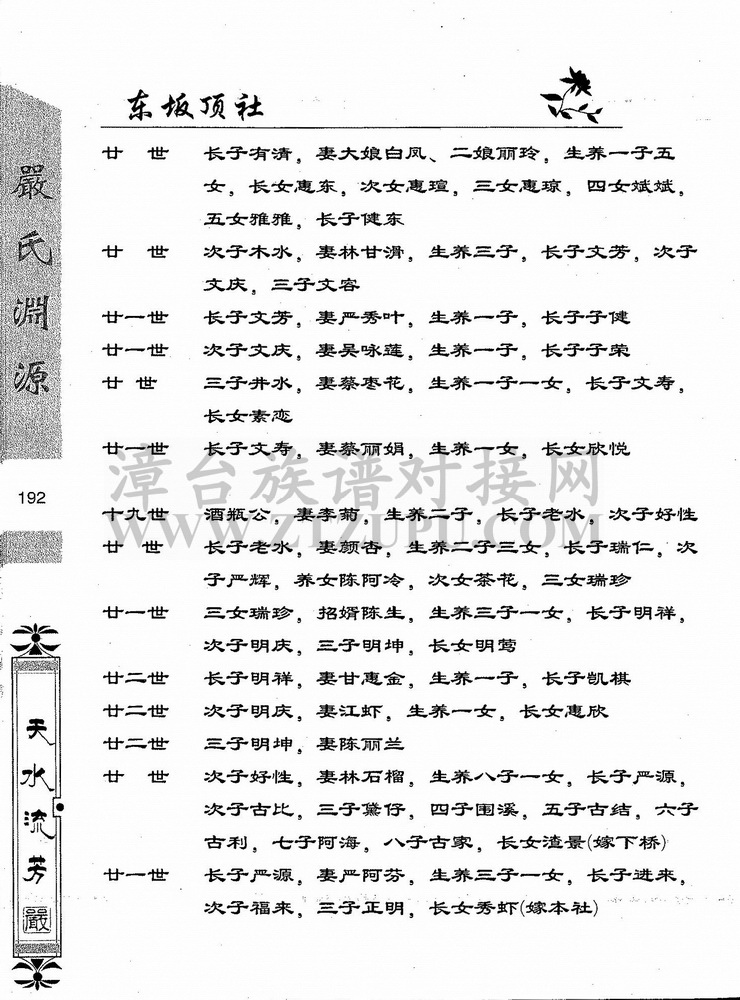 东坂顶社
嚴氏淵源
192
天水流芳
嚴
廿 世 长子有清，妻大娘白凤、二娘丽玲，生养一子五
女，长女惠东，次女惠瑄，三女惠琼，四女斌斌，
五女雅雅，长子健东
廿 世 次子木水，妻林甘滑，生养三子，长子文芳，次子
文庆，三子文容
廿一世 长子文芳，妻严秀叶，生养一子，长子子健
廿一世 次子文庆，妻吴咏莲，生养一子，长子子荣
廿 世 三子井水，妻蔡枣花，生养一子一女，长子文寿，
长女素恋
廿一世 长子文寿，妻蔡丽娟，生养一女，长女欣悦
漳台族谱对接网
WWW.ZTZUPU.COM
十九世 酒瓶公，妻李菊，生养二子，长子老水，次子好性
廿 世 长子老水，妻颜杏，生养二子三女，长子瑞仁，次
子严辉，养女陈阿冷，次女茶花，三女瑞珍
廿一世 三女瑞珍，招婿陈生，生养三子一女，长子明祥，
次子明庆，三子明坤，长女明莺
廿二世 长子明祥，妻甘惠金，生养一子，长子凯棋
廿二世 次子明庆，妻江虾，生养一女，长女惠欣
廿二世 三子明坤，妻陈丽兰
廿 世 次子好性，妻林石榴，生养八子一女，长子严源，
次子古比，三子黛仔，四子围溪，五子古结，六子
古利，七子阿海，八子古家，长女渣景(嫁下桥)
廿一世 长子严源，妻严阿芬，生养三子一女，长子进来，
次子福来，三子正明，长女秀虾(嫁本社)